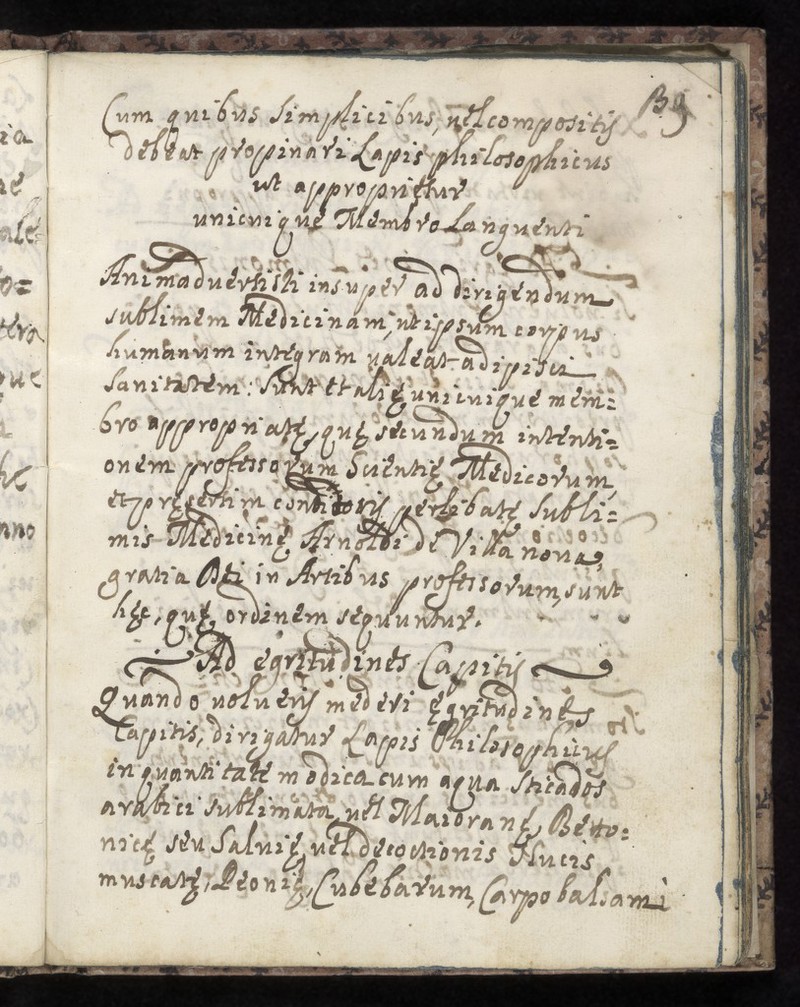 39
Cum quibus simplicibus, uel compositis
debeat propinari Lapis philosophicus
ut approprietur
unicuique Membro Languenti
Animaduertisti insuper ad dirigendum
sublimem Medicinam, ut ipsum corpus
humanum integram ualeat adipisci
sanitatem: sunt et alię unicuique mem=
bro appropriatę, quę secundum intenti=
onem professorum Scientię Medicorum,
et pręsertim conditoris perlibatę subli=
mis Medicinę Arnoldi de Villa noua,
gratia Dei in Artibus professorum, sunt
hęc, quę ordinem sequuntur.
Ad egritudines Capitis
Quando uolueris mederi ęgritudines
Capitis, dirigatur Lapis Philosophicus
in quantitate modica cum aqua sticados
arabici sublimata, uel Maioranę, Betto=
nicę seu Saluię, uel decoctionis Nucis
muscatę, Peonię, Cubebarum, Carpobalsami